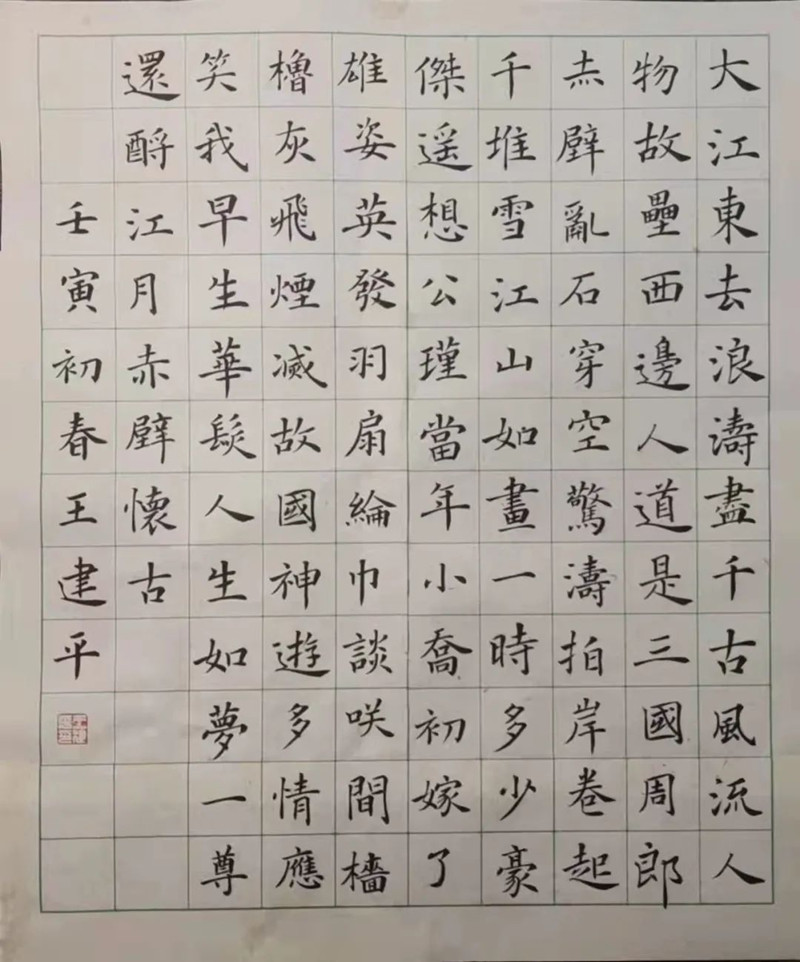 大江東去浪濤盡千古風流人
物故壘西邊人道是三國周郎
赤壁亂石穿空驚濤拍岸卷起
千堆雪江山如畫一時多少豪
傑遥想公瑾當年小喬初嫁了
雄姿英發羽扇綸巾談咲間檣
櫓灰飛煙滅故國神遊多情應
笑我早生華髮人生如夢一尊
還酹江月赤壁懷古
壬寅初春王建平